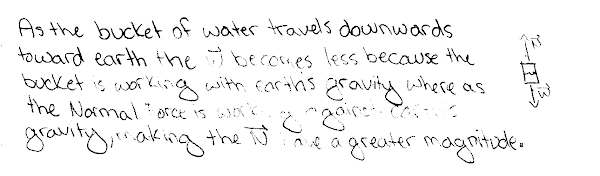 As the bucket of water travels downwards
toward earth the becomes less because the
bucket is working with earth's gravity where as
the Normal Force is working against
gravity, making the N⃗ have a greater magnitude.
N⃗
W⃗